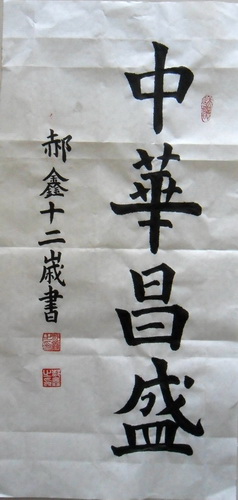 中華昌盛
郝鑫十二歳書